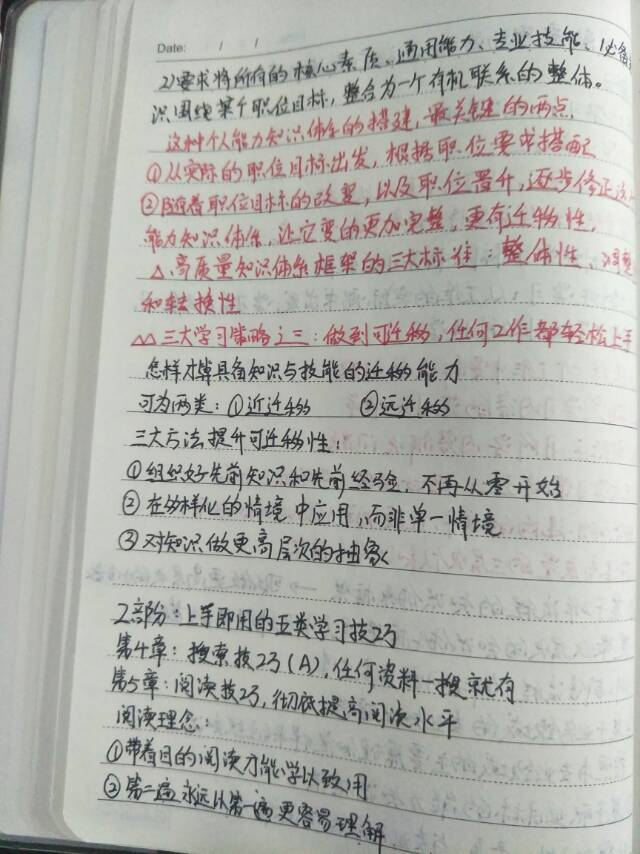 Date: / /
2)要求将所有的核心素质、通用能力、专业技能、必备
识围绕某个职位目标，整合为一个有机联系的整体。
这种个人能力知识体系的搭建，最关键的两点，
①从实际的职位目标出发，根据职位要求搭配
②随着职位目标的改变，以及职位晋升，逐步修正
能力知识体系，让它变的更加完整，更有迁移性，
△高质量知识体系框架的三大标准：整体性、
和转换性
△△三大学习策略之三：做到可迁移，任何工作都轻松上手
怎样才算具备知识与技能的迁移能力
可为两类：①近迁移 ②远迁移
三大方法提升可迁移性：
①组织好先前知识和先前经验，不再从零开始
②在多样化的情境中应用，而非单一情境
③对知识做更高层次的抽象
2部分：上手即用的五类学习技巧
第4章：搜索技巧(A)，任何资料一搜就有
第5章：阅读技巧，彻底提高阅读水平
阅读理念：
①带着目的阅读才能学以致用
②第二遍永远比第一遍更容易理解